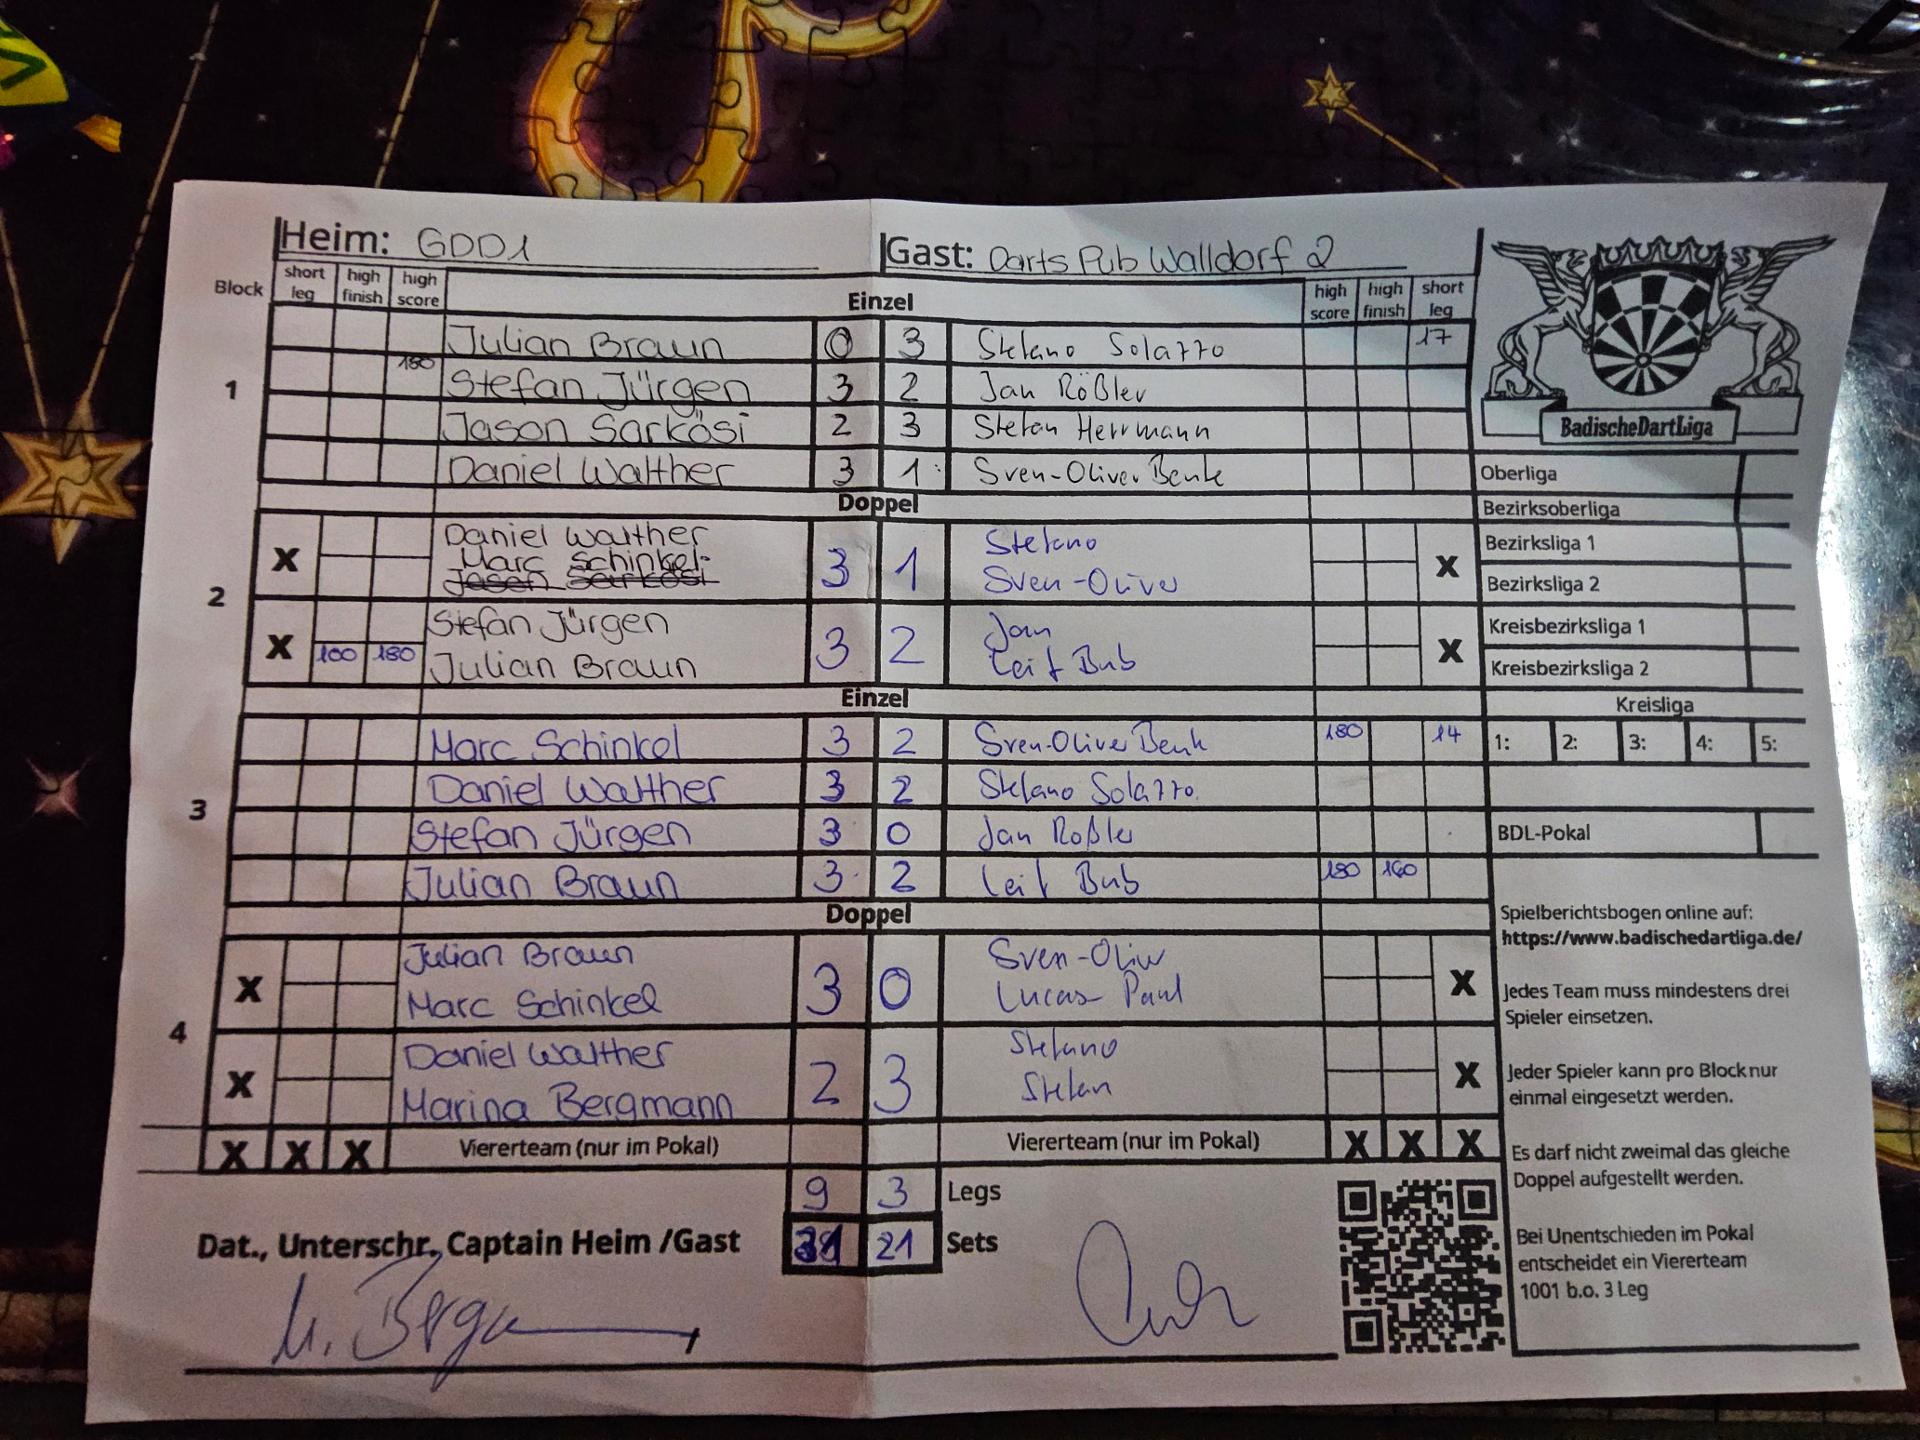 Heim: GDD1 Gast: Darts Pub Walldorf 2
Block short leg high finish high score Einzel high score high finish short leg
1
Julian Braun 0 3 Stefano Solazzo 17
180 Stefan Jürgen 3 2 Jan Rößler
Jason Sarkösi 2 3 Stefan Herrmann
Daniel Walther 3 1 Sven-Oliver Benk
Doppel
2
X Daniel Walther 3 1 Stefano X
Marc Schinkel Sven-Oliver
Jason Sarkösi
X Stefan Jürgen 3 2 Jan X
100 180 Julian Braun Leif Bub
Einzel
3
Marc Schinkel 3 2 Sven-Oliver Benk 180 14
Daniel Walther 3 2 Stefano Solazzo
Stefan Jürgen 3 0 Jan Roßler
Julian Braun 3 2 Leif Bub 180 160
Doppel
4
X Julian Braun 3 0 Sven-Oliv X
Marc Schinkel Lucas Paul
X Daniel Walther 2 3 Stefano X
Marina Bergmann Stefan
X X X Viererteam (nur im Pokal) Viererteam (nur im Pokal) X X X
9 3 Legs
Dat., Unterschr. Captain Heim /Gast 21 Sets
BadischeDartLiga
Oberliga
Bezirksoberliga
Bezirksliga 1
Bezirksliga 2
Kreisbezirksliga 1
Kreisbezirksliga 2
Kreisliga
1: 2: 3: 4: 5:
BDL-Pokal
Spielberichtsbogen online auf:
https://www.badischedartliga.de/
Jedes Team muss mindestens drei
Spieler einsetzen.
Jeder Spieler kann pro Block nur
einmal eingesetzt werden.
Es darf nicht zweimal das gleiche
Doppel aufgestellt werden.
Bei Unentschieden im Pokal
entscheidet ein Viererteam
1001 b.o. 3 Leg